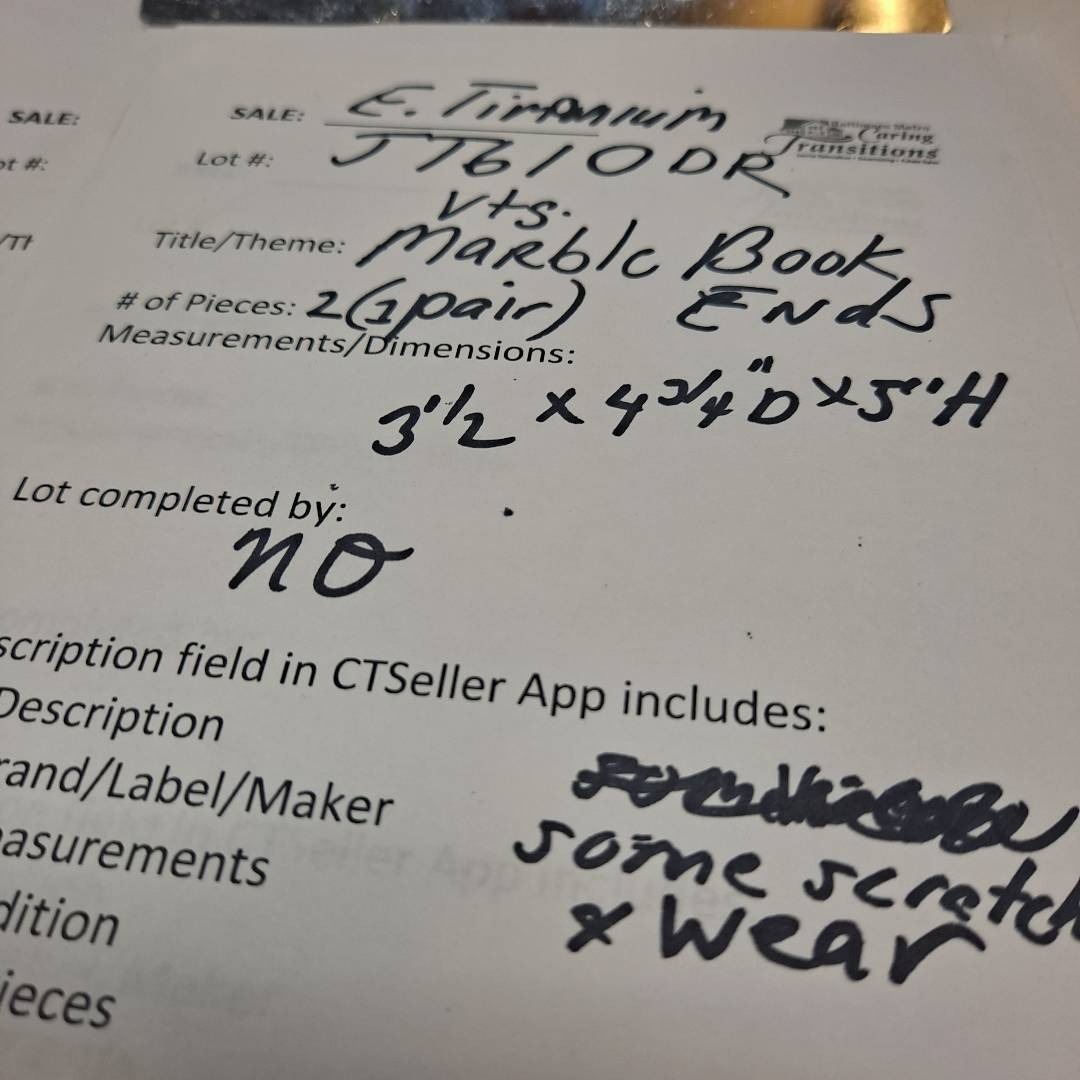 SALE:
SALE: E. Tirtanium
Caring
Transitions
ot #:
Lot #: JT610DR
Vts.
Title/Theme: Marble Book
Ends
# of Pieces: 2 (1 pair)
Measurements/Dimensions:
3 1/2 x 4 3/4" D x 5" H
Lot completed by:
NO
scription field in CTSeller App includes:
Description
rand/Label/Maker
asurements
some scratch
dition
x wear
ieces